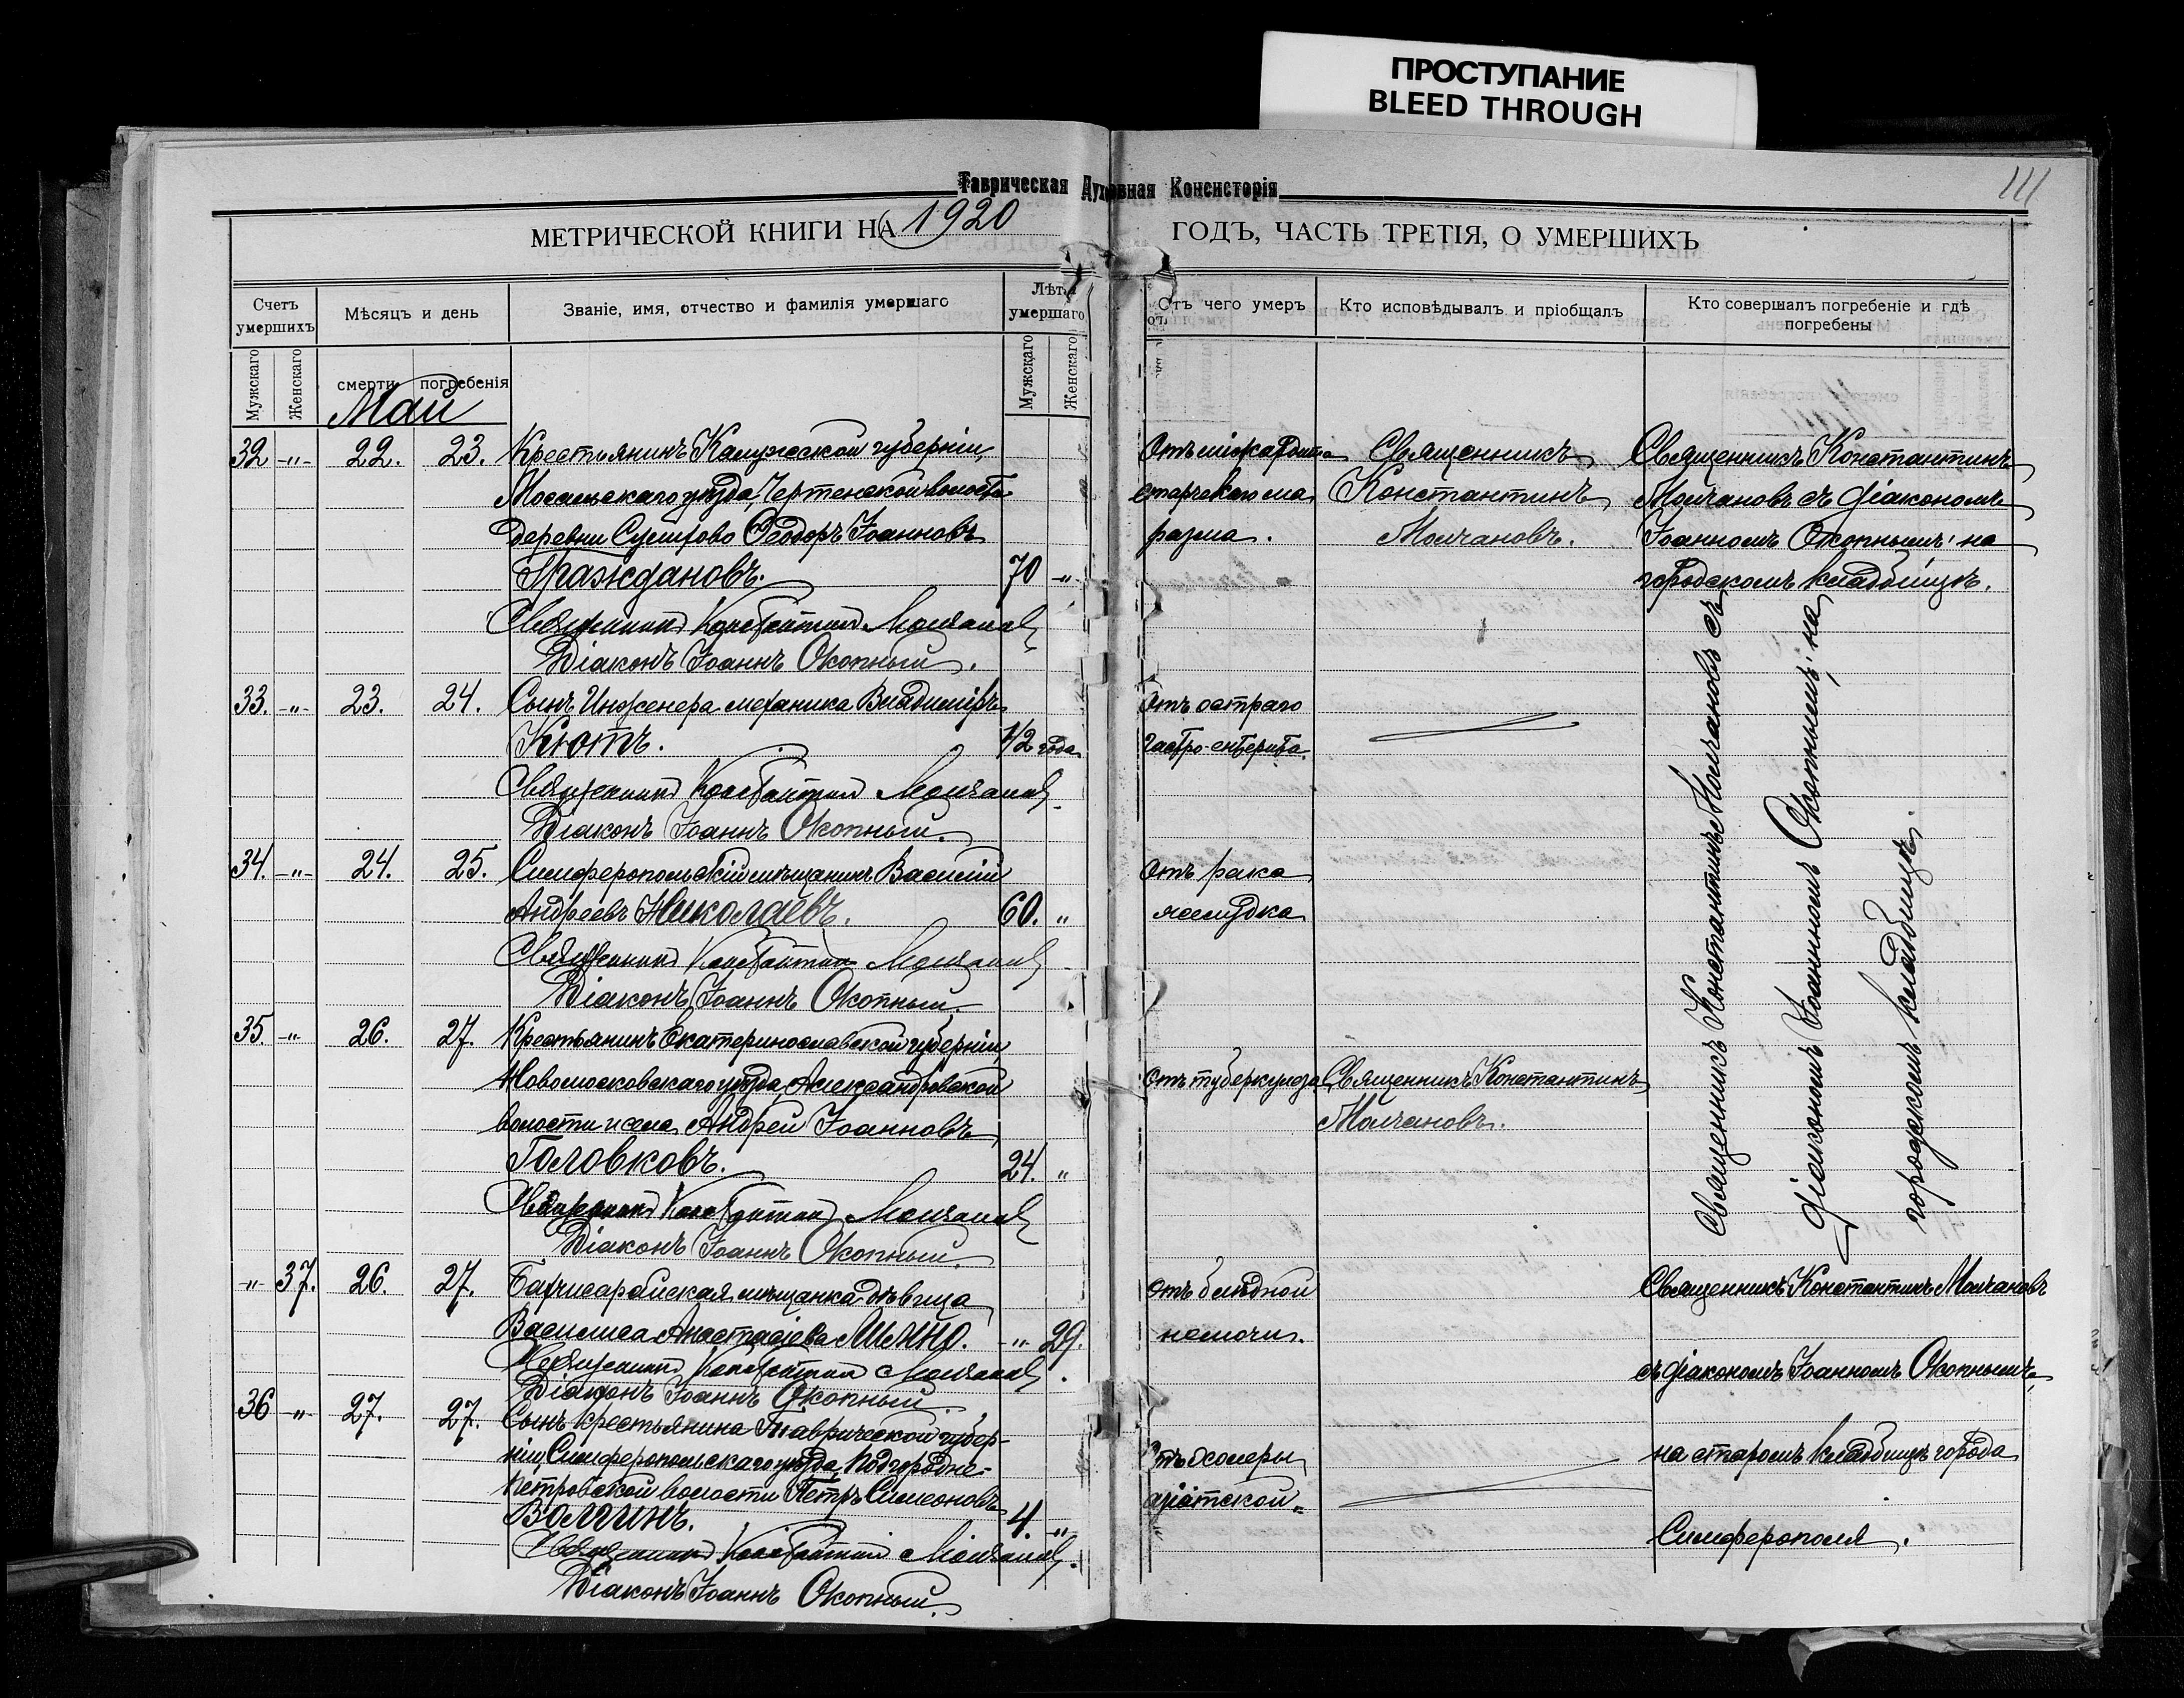 ПРОСТУПАНИЕ
BLEED THROUGH
111
Таврическая Духовная Консисторія
МЕТРИЧЕСКОЙ КНИГИ НА 1920 ГОДЪ, ЧАСТЬ ТРЕТІЯ, О УМЕРШИХЪ
Счетъ умершихъ
Мѣсяцъ и день
Званіе, имя, отчество и фамилія умершаго
Лѣта умершаго
Отъ чего умеръ
Кто исповѣдывалъ и пріобщалъ
Кто совершалъ погребеніе и гдѣ погребены
Мужскаго
Женскаго
смерти
погребенія
Мужскаго
Женскаго
Май
32 -"- 22. 23. Крестьянинъ Калужской губерніи,
Мосальскаго уѣзда, Чертенской волости
деревни Сушово Ѳеодоръ Іоанновъ
Граждановъ. 70 -"-
Священникъ Константинъ Молчановъ
Діаконъ Іоаннъ Окопный.
Отъ міокардита
старческого ма
разма.
Священникъ
Константинъ
Молчановъ.
Священникъ Константинъ
Молчановъ съ діакономъ
Іоанномъ Окопнымъ, на
городскомъ кладбищѣ.
33. -"- 23. 24. Сынъ Инженера механика Владиміръ
Кютъ. 1/2 года
Священникъ Константинъ Молчановъ
Діаконъ Іоаннъ Окопный.
Отъ остраго
гастро-энтерита.
34. -"- 24. 25. Симферопольскій мѣщанинъ Василій
Андреевъ Николаевъ. 60. "
Священникъ Константинъ Молчановъ
Діаконъ Іоаннъ Окопный.
Отъ рака
желудка
35. -"- 26. 27. Крестьянинъ Екатеринославской губерніи,
Новомосковскаго уѣзда, Александровской
волости и села Андрей Іоанновъ
Головковъ. 24. "
Священникъ Константинъ Молчановъ
Діаконъ Іоаннъ Окопный.
Отъ туберкулеза
Священникъ Константинъ
Молчановъ.
Священникъ Константинъ Молчановъ съ
діакономъ Іоанномъ Окопнымъ, на
городскомъ кладбищѣ.
-"- 37. 26. 27. Бахчисарайская мѣщанка дѣвица
Василиса Анастасіева -"- 29.
Священникъ Константинъ Молчановъ
Діаконъ Іоаннъ Окопный.
Отъ блѣдной
немочи.
36 -"- 27. 27. Сынъ крестьянина Таврической губер-
ніи Симферопольскаго уѣзда, Подгородне-
Петровской волости Петръ Симеоновъ
Волгинъ. 4. -"-
Священникъ Константинъ Молчановъ.
Діаконъ Іоаннъ Окопный.
Отъ холеры
азіатской.
Священникъ Константинъ Молчановъ
съ діакономъ Іоанномъ Окопнымъ,
на старомъ кладбищѣ города
Симферополя.